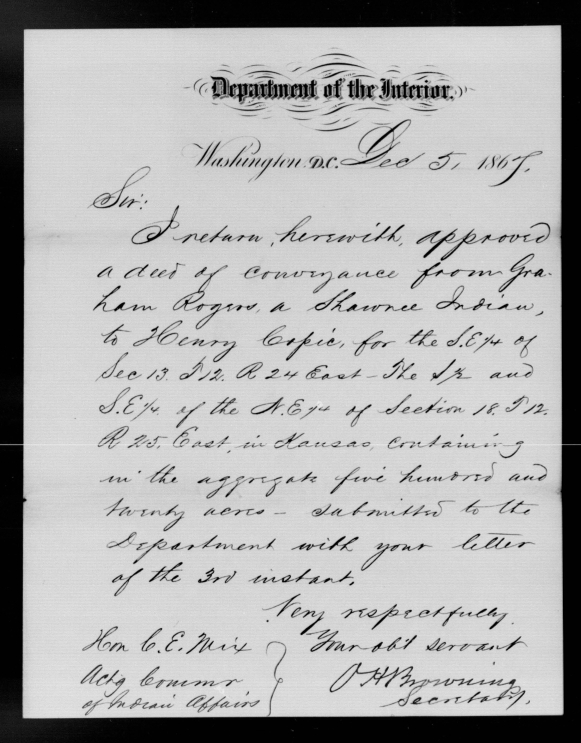 Department of the Interior,
Washington D.C. Dec 5, 1867.
Sir:
I return, herewith, approved
a deed of conveyance from Gra-
ham Rogers, a Shawnee Indian,
to Henry Copic, for the S.E 1/4 of
Sec 13. T 12. R 24 East - The S/2 and
S.E 1/4. of the N.E 1/4 of Section 18. T 12.
R 25. East, in Kansas, containing
in the aggregate five hundred and
twenty acres - submitted to the
Department with your letter
of the 3rd instant.
Very respectfully.
Your obt servant
O H Browning
Secretary.
Hon C. E. Mix
Actg Commr
of Indian Affairs